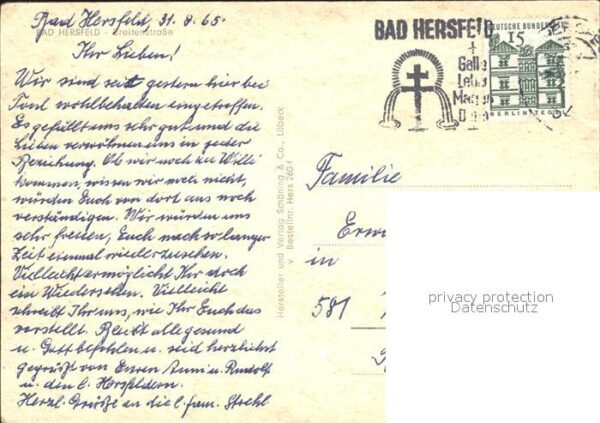 Bad Hersfeld, 31.8.65.
BAD HERSFELD - Breitenstraße
Ihr Lieben!
Wir sind seit gestern hier bei
Toni wohlbehalten eingetroffen.
Es gefällt uns sehr gut und die
Lieben verwöhnen uns in jeder
Beziehung. Ob wir noch zu Willi
kommen, wissen wir noch nicht,
würden Euch von dort aus noch
verständigen. Wir würden uns
sehr freuen, Euch nach so langer
Zeit einmal wiederzusehen.
Vielleicht ermöglicht Ihr doch
ein Wiedersehen. Vielleicht
schreibt Ihr uns, wie Ihr Euch das
vorstellt. Bleibt alle gesund
u. Gott befohlen u. seid herzlichst
gegrüßt von Euren Anni u. Rudolf
u. den l. Hersfeldern.
Herzl. Grüße an die l. Fam. Strehl.
Hersteller und Verlag Schöning & Co., Lübeck
Bestellnr. Hers 260 f
BAD HERSFELD
Galle
Leber
Magen
Darm
DEUTSCHE BUNDESPOST
15
BERLIN-TEGEL
Familie
Erw
in
581
privacy protection
Datenschutz